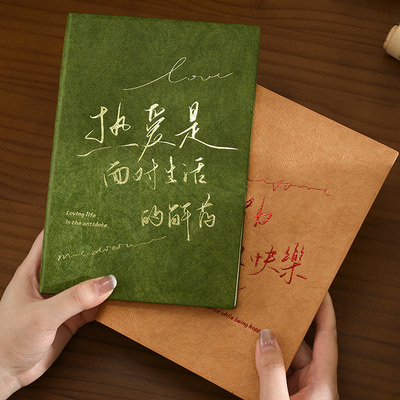 love
热爱是
面对生活
的解药
Loving life
is the antidote
快樂
while being happy